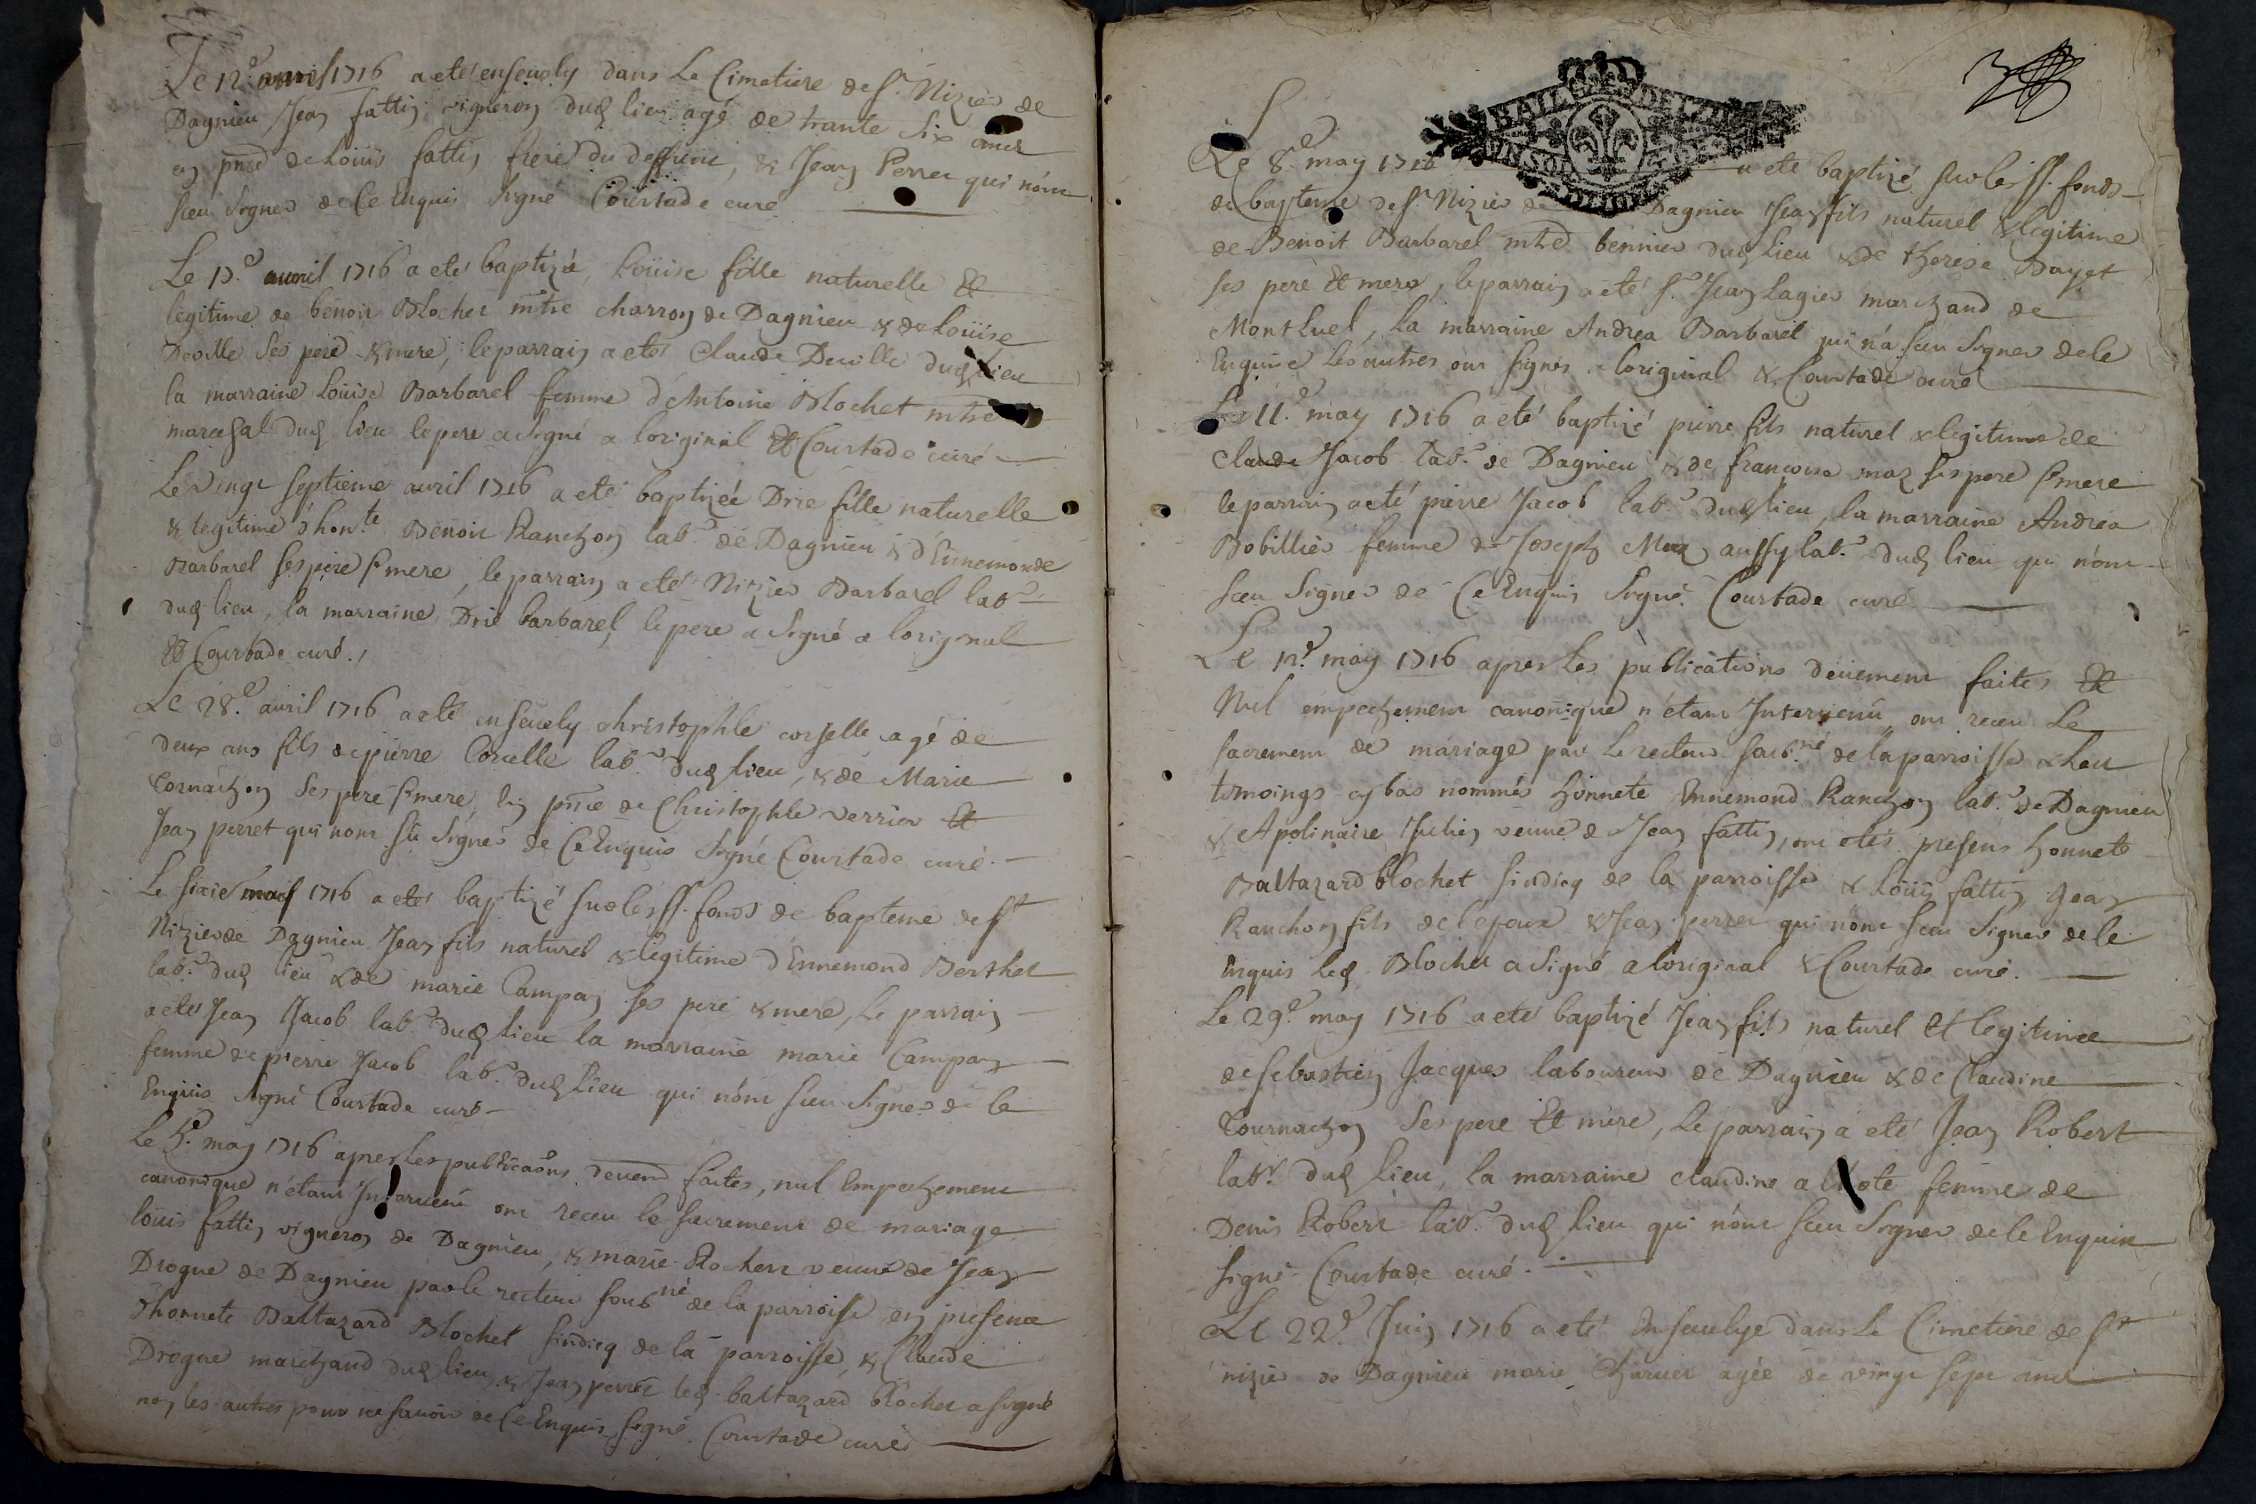 Le 12e avril 1716 a eté ensevely dans Le Cimetiere de St. Nizier de
Dagnieu Jean fattin vigneron dud lieu agé de trante Six ans
en pnce de Loüis fattin frere du deffunt, & Jean Perret qui n'ont
sceu signer de Ce Enquis Signé Courtade curé
Le avril 1716 a eté baptizée, Loüise fille naturelle Et
legitime de benoit Blochet mtre charron de Dagnieu & de Loüise
Deville Ses pere & mere, le parrain a eté Claude Deville dud lieu
la marraine Loüise Barbarel femme d'Antoine Blochet mtre
marechal dud lieu le pere a signé a loriginal Et Courtade curé
Le vingt septieme avril 1716 a eté baptizée Drie fille naturelle
& legitime d'hon.te Benoit Ranchon lab.r de Dagnieu & d'Ennemonde
Barbarel ses pere & mere, le parrain a eté Nizier Barbarel lab.r
dud lieu, la marraine Drie barbarel, le pere a Signé a loriginal
Et Courtade curé.
Le 28.e avril 1716 a eté ensevely christophle corselle agé de
deux ans fils de pierre Corcelle lab.r dud lieu, & de Marie
Tornachon Ses pere & mere, En pnce de Christophle verrier Et
Jean perret qui n'ont sü signer de Ce Enquis Signé Courtade curé
Le sixie may 1716 a eté baptizé sur les ff. fonds de bapteme de St
Nizier de Dagnieu Jean fils naturel & legitime d'Ennemond Berthet
lab.r dud lieu & de marie Campan ses pere & mere, Le parrain
a eté Jean Jacob lab.r dud lieu la marraine marie Campan
femme de pierre Jacob lab.r dud lieu qui n'ont sceu signer de le
Enquis Signé Courtade curé
Le may 1716 apres les publicaons devemt faites, nul Empechement
canonique n'étant Intervenü ont receu le sacrement de mariage
loüis fattin vigneron de Dagnieu, & marie Rochert veuve de Jean
Drogue de Dagnieu par le recteur soubné de la parroisse en presence
d'honnete Baltazard Blochet sindicq de la parroisse, & Claude
Drogue marchand dud lieu, & Jean perret led baltazard blochet a signé
non les autres pour ne savoir de Ce Enquis Signé Courtade curé
BAIL DE LYON
Le 8.e may 1716 a eté baptizé sur les ff. fonds
de bapteme de St. Nizier de Dagnieu Jean fils naturel & legitime
de Benoit Barbarel mtre bennier dud lieu & de therese Bayet
ses pere Et mere, le parrain a eté Sr. Jean Lagier marchand de
Montluel, la marraine Andrea Barbarel qui n'a sceu signer de le
Enquise les autres ont signés a loriginal & Courtade curé
Le 11.e may 1716 a eté baptizé pierre fils naturel & legitime de
Claude Jacob lab.r de Dagnieu & de francoise maz ses pere & mere
le parrain a eté pierre Jacob lab.r dud lieu, la marraine Andrea
Bobillier femme de Joseph Maz aussy lab.r dud lieu qui n'ont
sceu signer de Ce Enquis Signé Courtade curé
Le 12.e may 1716 apres les publications deüement faites Et
Nul empechement canonique n'étant Intervenü ont receu Le
sacrement de mariage par Le recteur soub.né de la parroisse & les
temoings cy bas nommés honnete Ennemond Ranchon lab.r de Dagnieu
& Apolinaire Julien veuve de Jean fattin, ont etés presens honnete
Baltazard blochet sindicq de la parroisse & Loüis fattin Jean
Ranchon fils de l'epoux & Jean perret qui n'ont sceu signer de le
Enquis led Blochet a signé a loriginal & Courtade curé.
Le 29.e may 1716 a eté baptizé Jean fils naturel Et legitime
de sebastien Jacques laboureur de Dagnieu & de Claudine
Tournachon Ses pere Et mere, Le parrain a eté Jean Robert
lab.r dud lieu, la marraine claudine femme de
Denis Robert lab.r dud lieu qui n'ont sceu signer de le Enquis
signé Courtade curé.
Le 22.e Juin 1716 a eté Ensevelye dans Le Cimetiere de St
nizier de Dagnieu marie agée de vingt sept ans